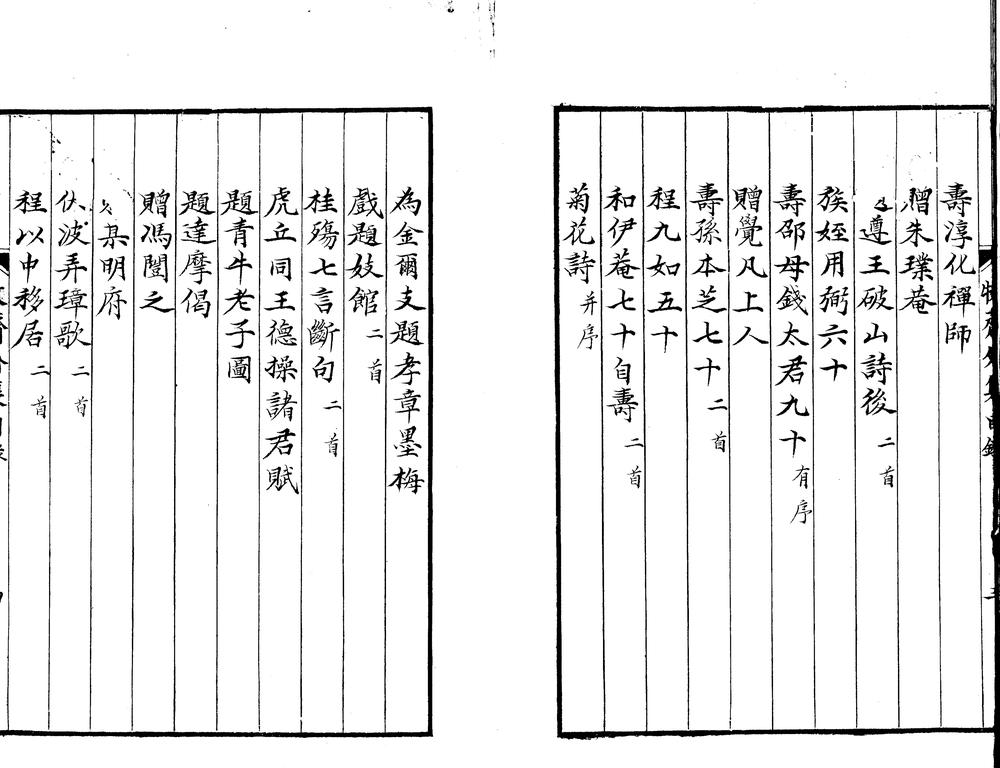 壽淳化禪師
贈朱璞菴
遵王破山詩後 二首
族姪用弼六十
壽邵母錢太君九十 有序
贈覺凡上人
壽孫本芝七十 二首
程九如五十
和伊菴七十自壽 二首
菊花詩 并序
為金爾支題孝章墨梅
戲題妓館 二首
桂殤七言斷句 二首
虎丘同王德操諸君賦
題青牛老子圖
題達摩偈
贈馮闇之
某明府
伏波弄璋歌 二首
程以中移居 二首